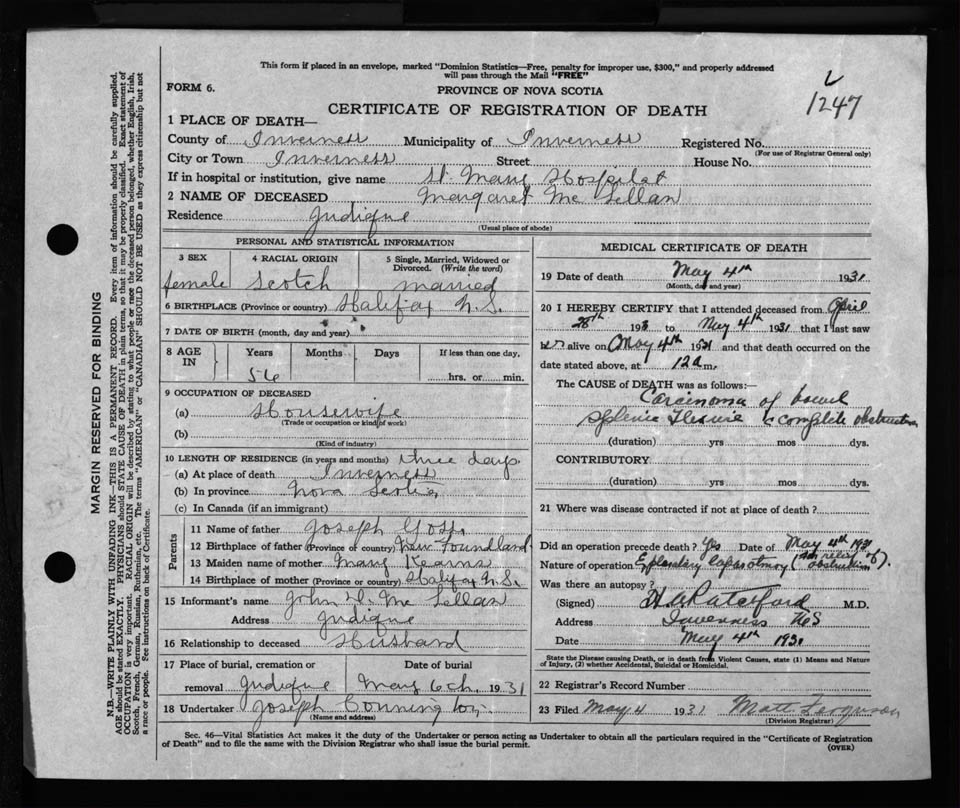 This form if placed in an envelope, marked "Dominion Statistics—Free, penalty for improper use, $300," and properly addressed
will pass through the Mail "FREE"
FORM 6.
PROVINCE OF NOVA SCOTIA
1247
CERTIFICATE OF REGISTRATION OF DEATH
1 PLACE OF DEATH—
County of Inverness Municipality of Inverness Registered No.
(For use of Registrar General only)
City or Town Inverness Street House No.
If in hospital or institution, give name St. Mary Hospital
2 NAME OF DECEASED Margaret Mc Lellan
Residence Judique
(Usual place of abode)
PERSONAL AND STATISTICAL INFORMATION
3 SEX 4 RACIAL ORIGIN 5 Single, Married, Widowed or
Divorced. (Write the word)
female Scotch married
6 BIRTHPLACE (Province or country) Halifax N.S.
7 DATE OF BIRTH (month, day and year)
8 AGE IN Years Months Days If less than one day,
56 hrs. or min.
9 OCCUPATION OF DECEASED
(a) Housewife
(Trade or occupation or kind of work)
(b)
(Kind of industry)
10 LENGTH OF RESIDENCE (in years and months) three days
(a) At place of death Inverness
(b) In province Nova Scotia
(c) In Canada (if an immigrant)
Parents
11 Name of father Joseph
12 Birthplace of father (Province or country) New Foundland
13 Maiden name of mother Mary Kearns
14 Birthplace of mother (Province or country) Halifax N.S.
15 Informant's name John D. Mc Lellan
Address Judique
16 Relationship to deceased Husband
17 Place of burial, cremation or Date of burial
removal Judique May 6th, 1931
18 Undertaker Joseph
(Name and address)
MEDICAL CERTIFICATE OF DEATH
19 Date of death May 4th 1931
(Month, day and year)
20 I HEREBY CERTIFY that I attended deceased from April
28th 193 to May 4th 1931 that I last saw
her alive on May 4th 1931 and that death occurred on the
date stated above, at 12 a m.
The CAUSE of DEATH was as follows:
Carcinoma of bowel
Splenic Flexure c complete obstruction
(duration) yrs mos dys.
CONTRIBUTORY
(duration) yrs mos dys.
21 Where was disease contracted if not at place of death?
Did an operation precede death? Yes Date of May 4th 1931
Nature of operation Exploratory (to relief of obstruction).
Was there an autopsy?
(Signed) M.D.
Address Inverness NS
Date May 4th 1931
State the Disease causing Death, or in death from Violent Causes, state (1) Means and Nature
of Injury, (2) whether Accidental, Suicidal or Homicidal.
22 Registrar's Record Number
23 Filed May 4 1931 Matt Ferguson
(Division Registrar)
Sec. 46—Vital Statistics Act makes it the duty of the Undertaker or person acting as Undertaker to obtain all the particulars required in the "Certificate of Registration
of Death" and to file the same with the Division Registrar who shall issue the burial permit. (OVER)
MARGIN RESERVED FOR BINDING
N.B.—WRITE PLAINLY WITH UNFADING INK—THIS IS A PERMANENT RECORD. Every item of information should be carefully supplied.
AGE should be stated EXACTLY. PHYSICIANS should STATE CAUSE OF DEATH in plain terms, so that it may be properly classified. Exact statement of
OCCUPATION is very important. RACIAL ORIGIN will be described by stating to what people or race the deceased person belonged, whether English, Irish,
Scotch, French, German, Russian, Ruthenian, etc. The terms "AMERICAN" or "CANADIAN" SHOULD NOT BE USED as they express citizenship but not
a race or people. See instructions on back of Certificate.